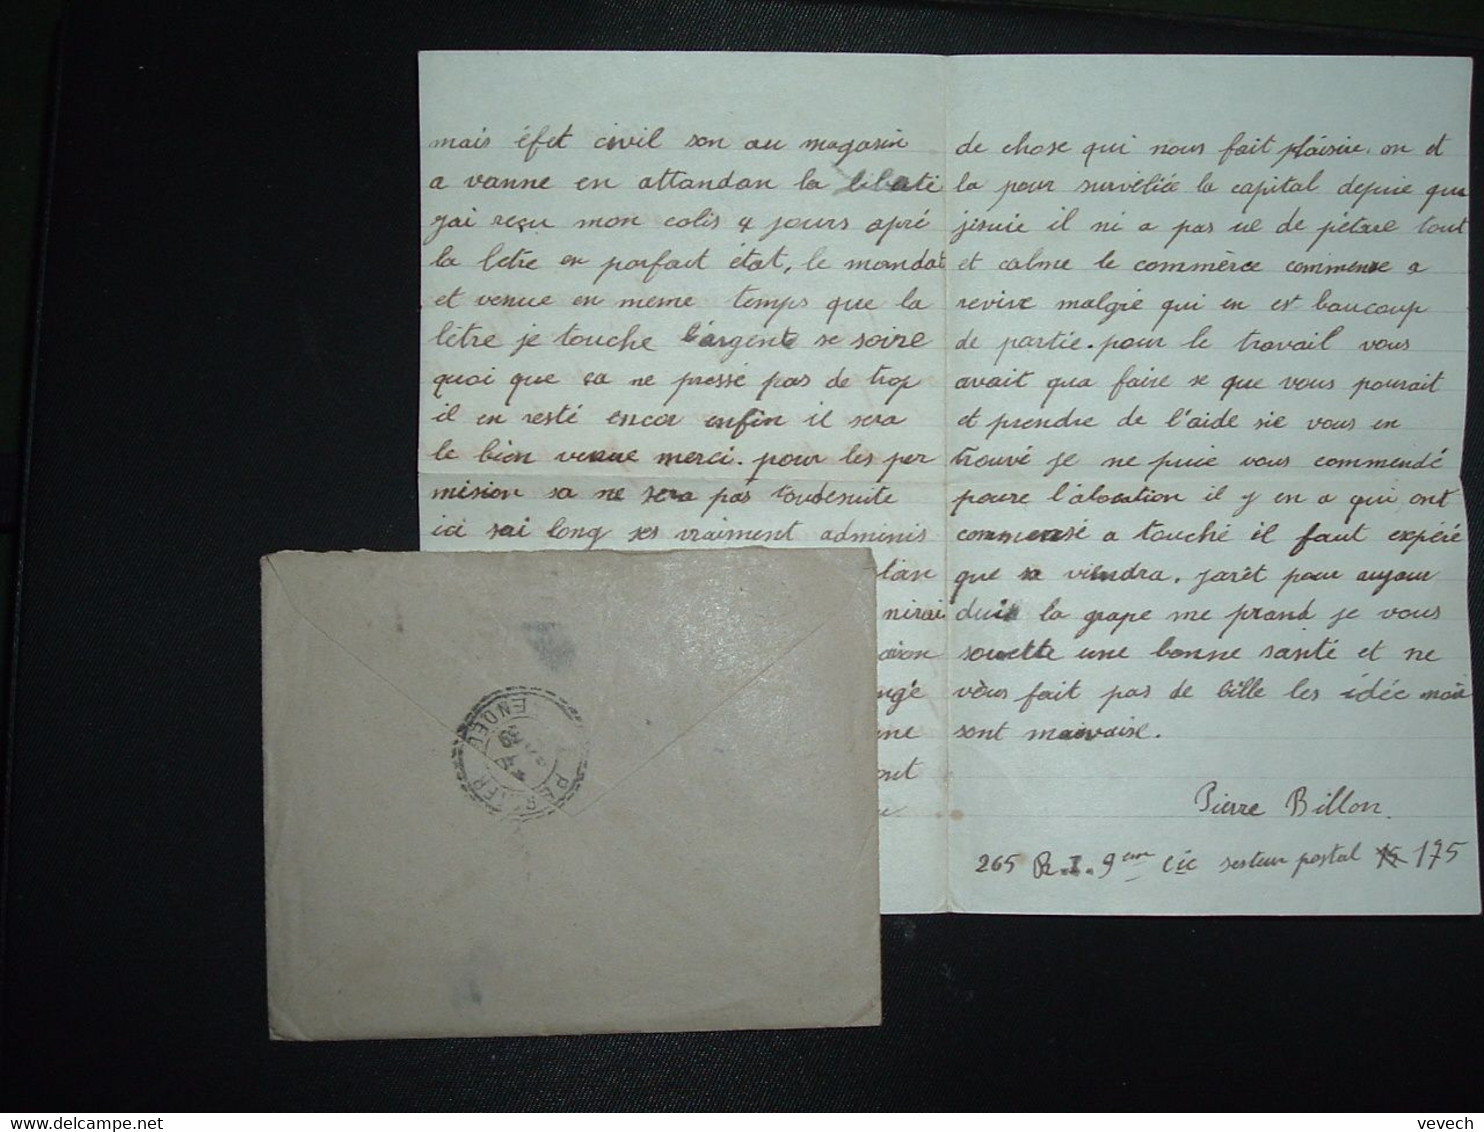 mais éfet civil son au magasin
a vanne en attandan la
jai reçu mon colis 4 jours apré
la letre en parfait état, le mandat
et venue en meme temps que la
lètre je touche l'argente se soire
quoi que sa ne pressé pas de trop
il en resté encor enfin il sera
le bien venue merci. pour les per
mision sa ne sera pas toudesuite
ici sai long ses vraiment adminis
lan
nirai
aison
ngé
me
ont
de chose qui nous fait plaisire. on et
la pour survélié la capital depuie que
jesuie il ni a pas ue de pétare tout
et calme le commèrce commense a
revivre malgré qui en est baucoup
de partie. pour le travail vous
avait qua faire se que vous pourait
et prendre de l'aide sie vous en
trouvé je ne puie vous commendé
poure l'alocation il y en a qui ont
commensé a touché il faut expéré
que sa viendra. jarèt pour aujour
duit la grape me prand je vous
souette une bonne santé et ne
vous fait pas de bille les idée noir
sont mauvaise.
Pierre Billon.
265 R.I. 9 em Cie secteur postal 175
vevech